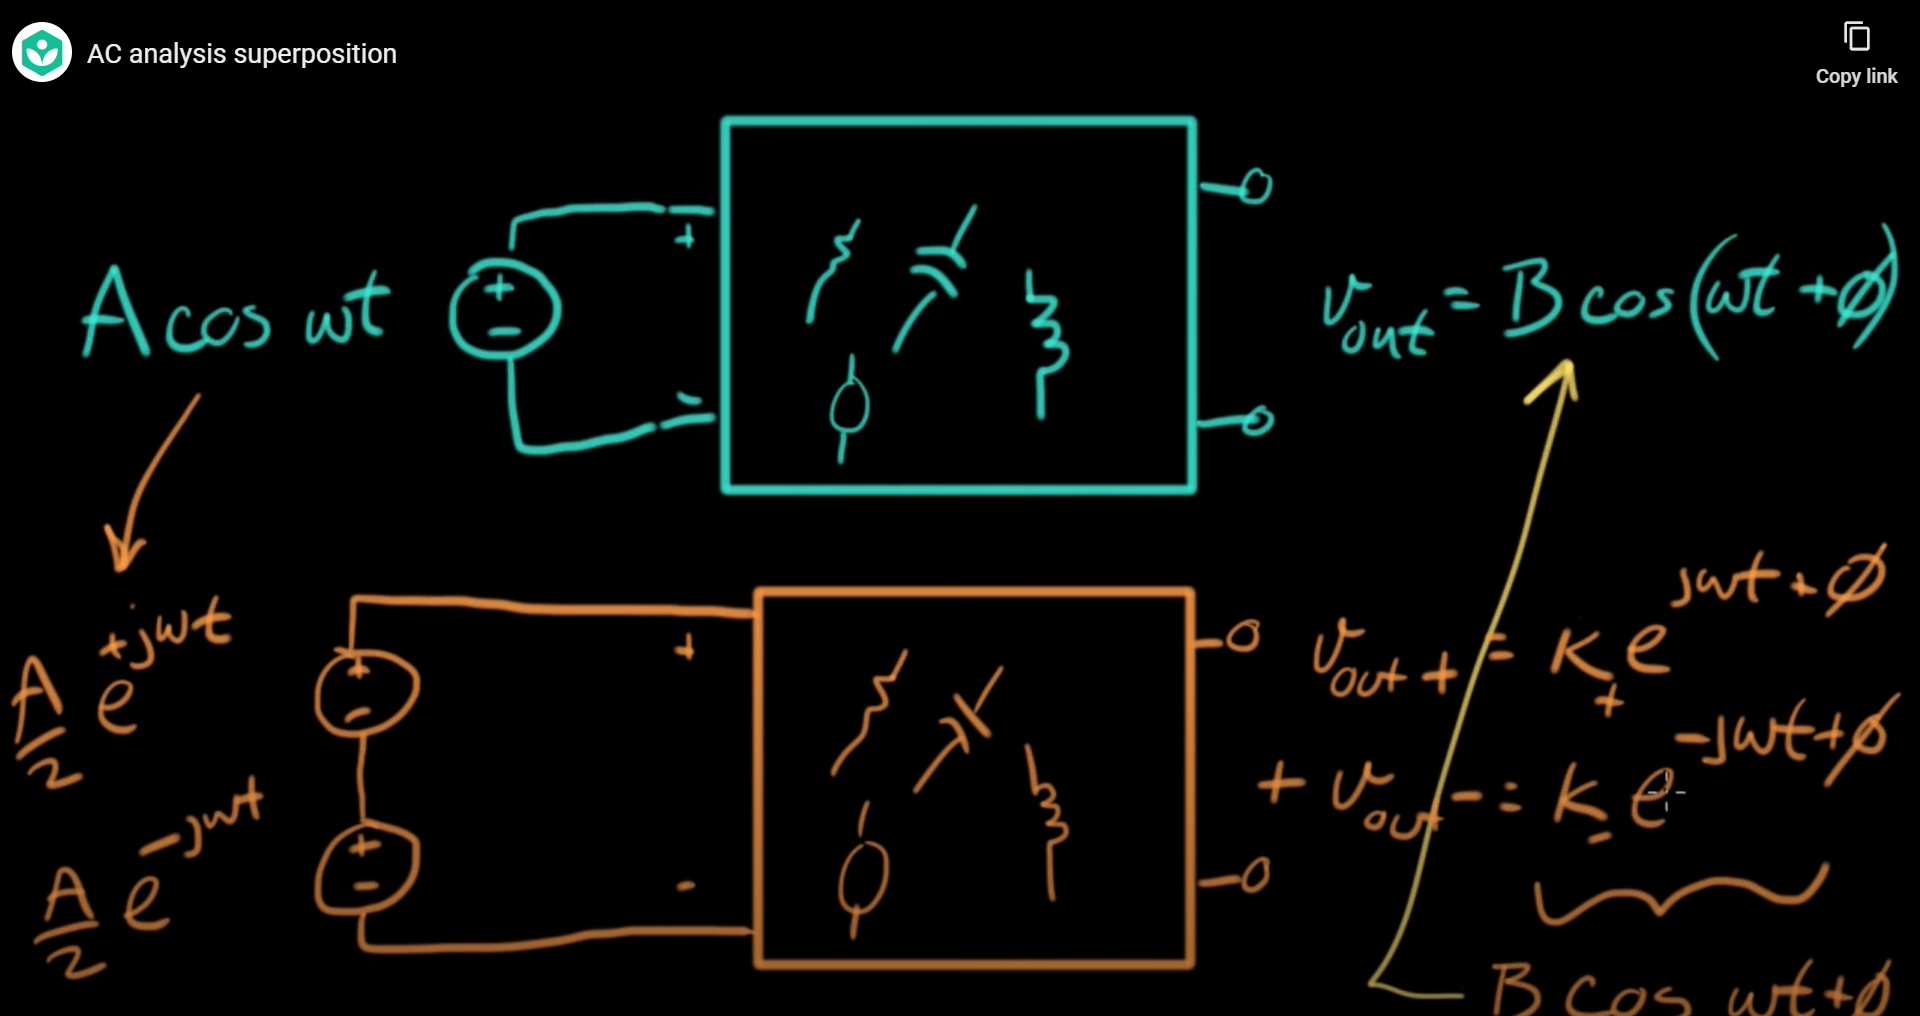 AC analysis superposition
Copy link
A cos ωt
+
−
+
−
v_out = B cos(ωt + ϕ)
A/2 e^{+jωt}
A/2 e^{-jωt}
+
−
+
−
+
−
v_out+ = K_+ e^{jωt+ϕ}
+ v_out− = K_- e^{-jωt+ϕ}
B cos ωt+ϕ